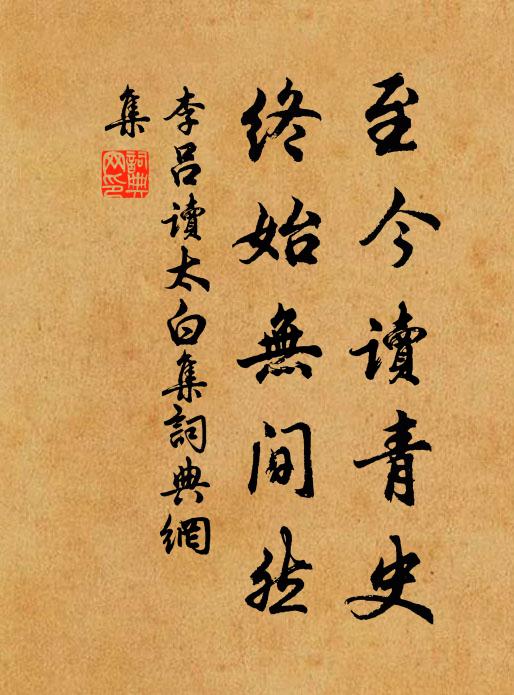 至今讀青史
終始無間然
李呂讀太白集詞典網
集
詞典
网印